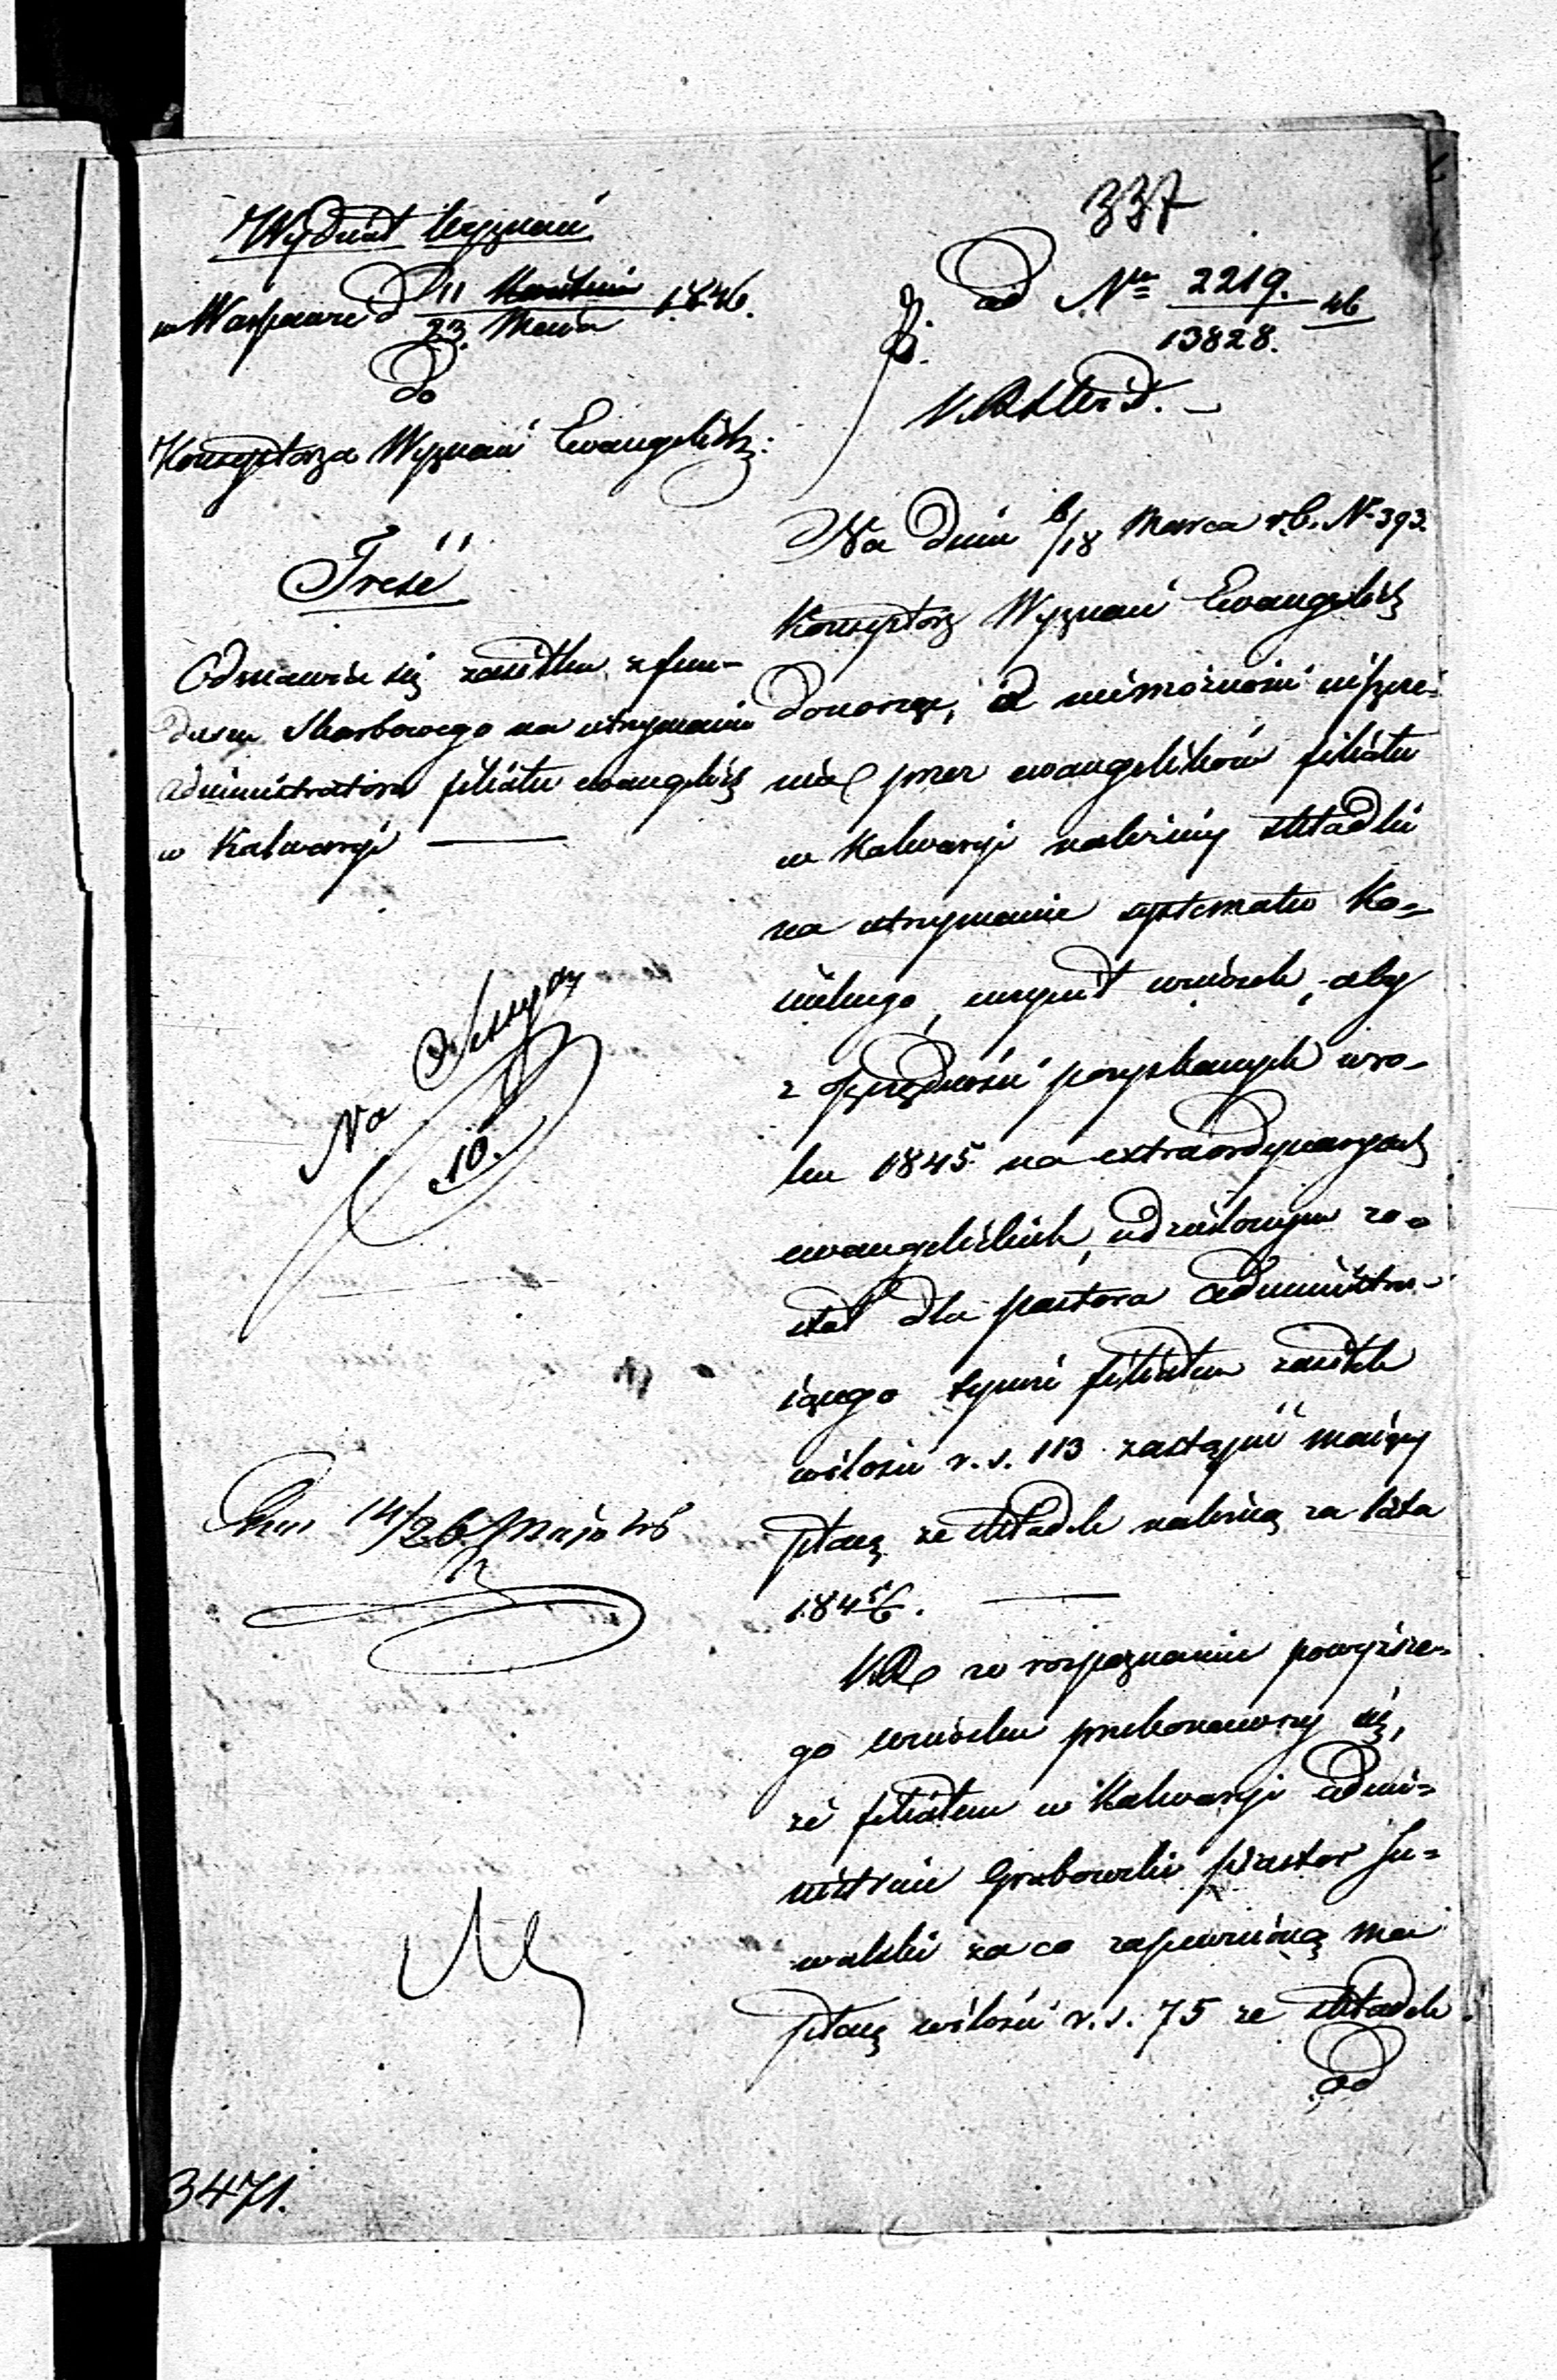 337
Wydział Wyznań
w Warszawie d 11 Kwietnia 1846.
23. Maia
Do
Konsystorza Wyznań Ewangelickz:
Treść
Odmawia się zasiłku z fun-
duszu Skarbowego na utrzymanie
administratora filiału ewangelick
w Kalwaryi —
Na
10.
14/26 Maja
3471.
ad Nro 2219. 46
13828.
Na dniu 6/18 Marca r.b. Nr 393.
Konsystorz Wyznań Ewangelick
donosząc, o niemożności
nia przez ewangelików filiału
w Kalwaryi należnej składki
na utrzymanie systematu Ko-
ścielnego, uczynił wniosek, aby
z oszczędności pozyskanych w ro-
ku 1845 na extraordynaryach
ewangelickich, udzielonym zo-
stał dla pastora administru-
iącego tymże filiałem zasiłek
w ilości r.s. 113 zastąpić maiący
płacę ze składek należną za lata
1845/6. —
KR w rozpoznaniu powyższe-
go wniosku przekonawszy się,
że filiałem w Kalwaryi admi-
nistruie Grabowski Pastor Su-
walski za co zapewnioną ma
płacę w ilości r.s. 75 ze składek
od